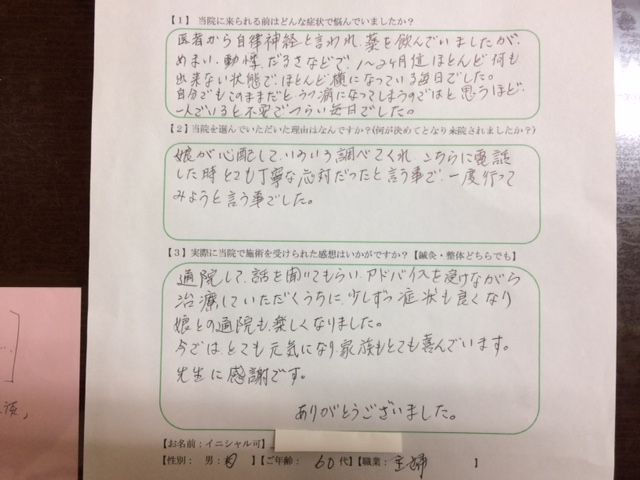 【1】 当院に来られる前はどんな症状で悩んでいましたか？
医者から自律神経と言われ、薬を飲んでいましたが、
めまい、動悸、だるさなどで、1〜2ヶ月位ほとんど何も
出来ない状態で、ほとんど横になっている毎日でした。
自分でもこのままだとうつ病になってしまうのではと思うほど、
一人でいると不安でつらい毎日でした。
【2】当院を選んでいただいた理由はなんですか？(何が決めてとなり来院されましたか？)
娘が心配して、いろいろ調べてくれ、こちらに電話
した時とても丁寧な応対だったと言う事で、一度行って
みようと言う事でした。
【3】実際に当院で施術を受けられた感想はいかがですか？【鍼灸・整体どちらでも】
通院して、話を聞いてもらい、アドバイスを受けながら
治療していただくうちに、少しずつ症状も良くなり
娘との通院も、楽しくなりました。
今では、とても元気になり、家族もとても喜んでいます。
先生に感謝です。
ありがとうございました。
【お名前：イニシャル可】
【性別： 男：女 】【ご年齢： 60代】【職業： 主婦 】